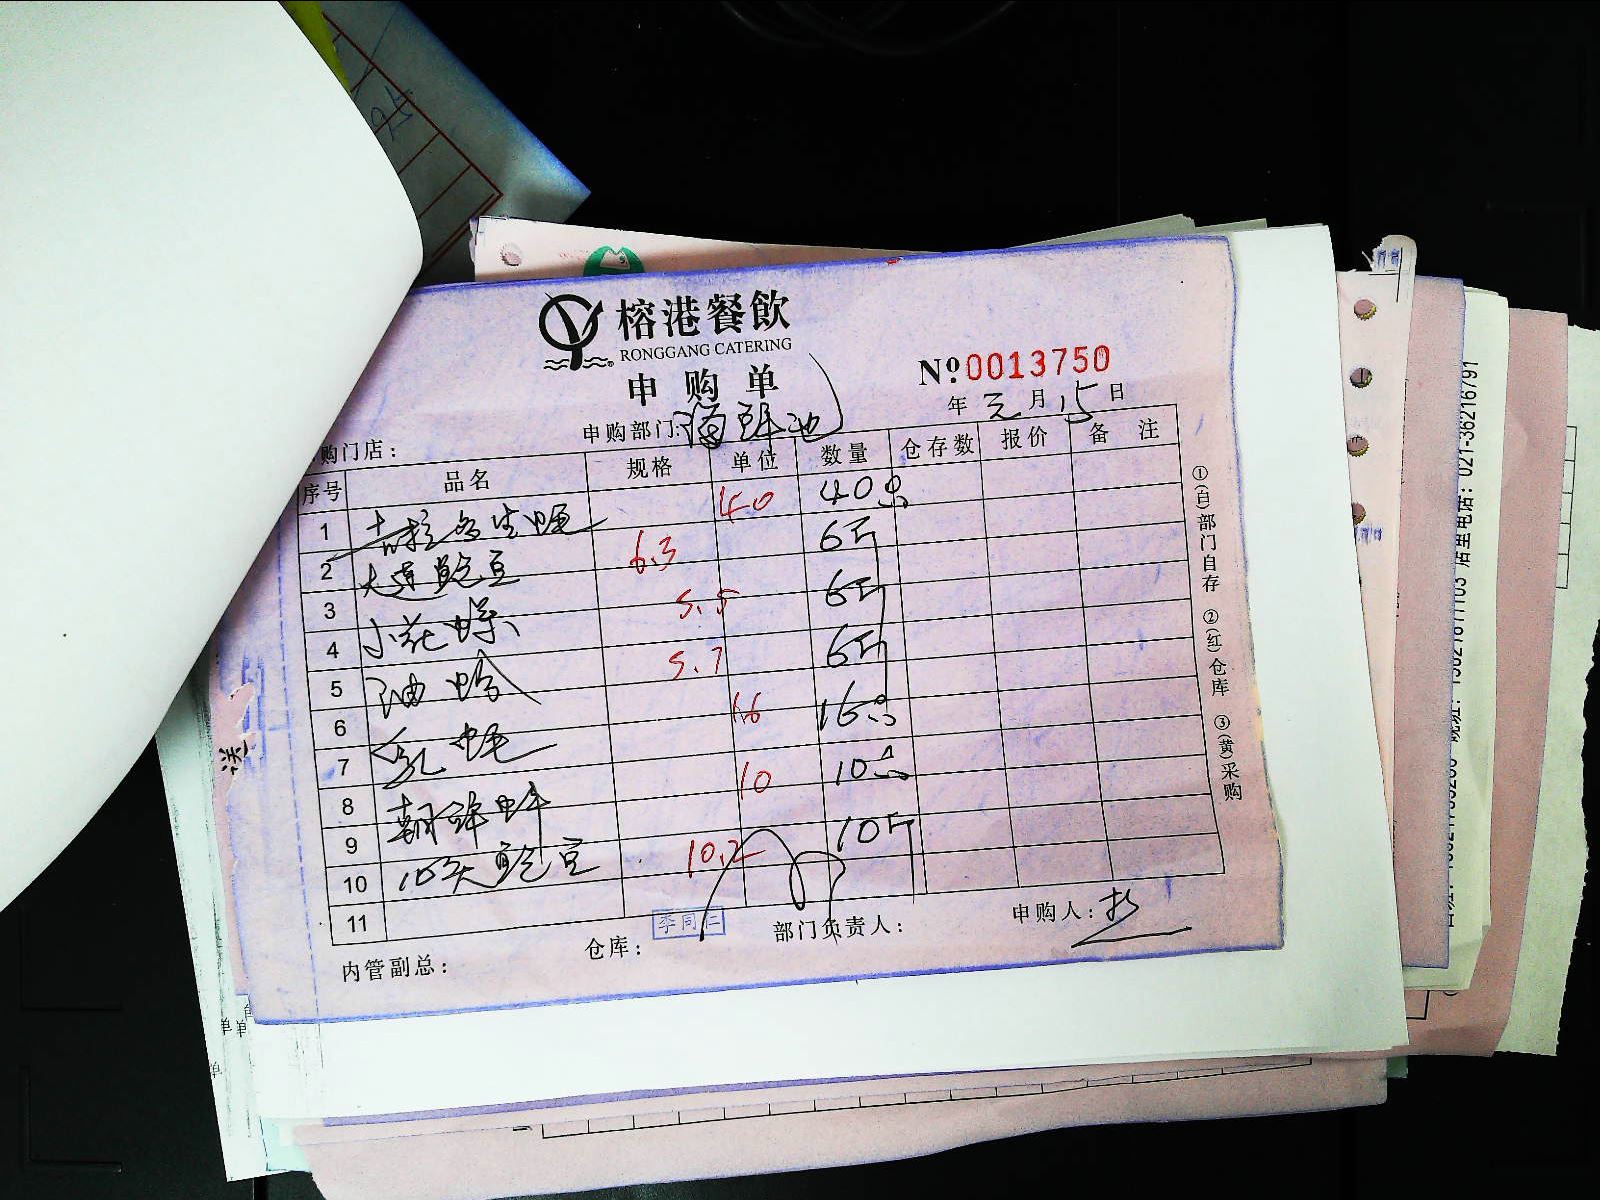 榕港餐飲
RONGGANG CATERING
申购单
№0013750
年 元 月 15 日
申购部门: 海鲜池
购门店:
序号 品名 规格 单位 数量 仓存数 报价 备注
1 吉拉多生蚝 40 40只
2 大连鲍 6.3 6斤
3 小花螺 5.5 6斤
4 油蛤 5.7 6斤
5 乳 16 16只
6 10 10只
7 10头鲍 10.2 10斤
8
9
10
11
①(白)部门自存 ②(红)仓库 ③(黄)采购
内管副总:
仓库: 李同仁
部门负责人:
申购人:
送
店里电话: 021-36216791